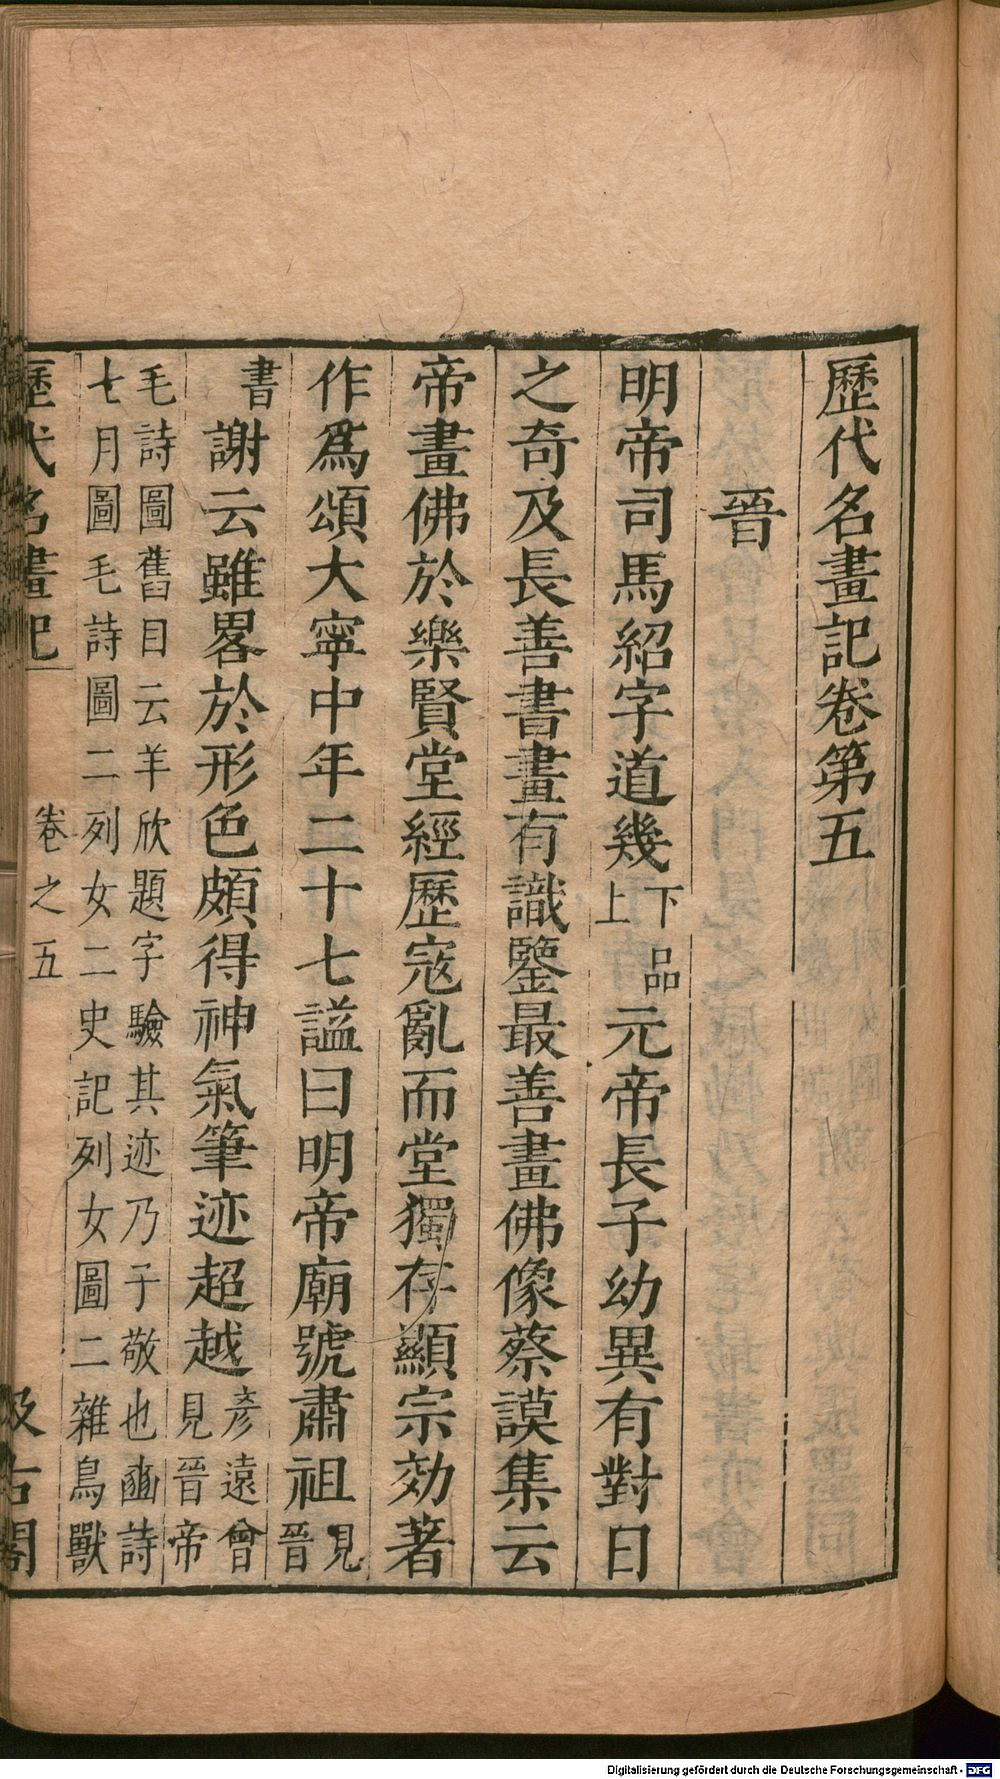 歷代名畫記卷第五
晉
明帝司馬紹字道幾下品上元帝長子幼異有對日
之奇及長善書畫有識鑒最善畫佛像蔡謨集云
帝畫佛於樂賢堂經歷寇亂而堂獨存顯宗効著
作爲頌大寧中年二十七謚曰明帝廟號肅祖見晉
書謝云雖畧於形色頗得神氣筆迹超越彥遠曾見晉帝
毛詩圖舊目云羊欣題字驗其迹乃子敬也豳詩
七月圖毛詩圖二列女二史記列女圖二雜鳥獸
歷代名畫記 卷之五 汲古閣
Digitalisierung gefördert durch die Deutsche Forschungsgemeinschaft - DFG